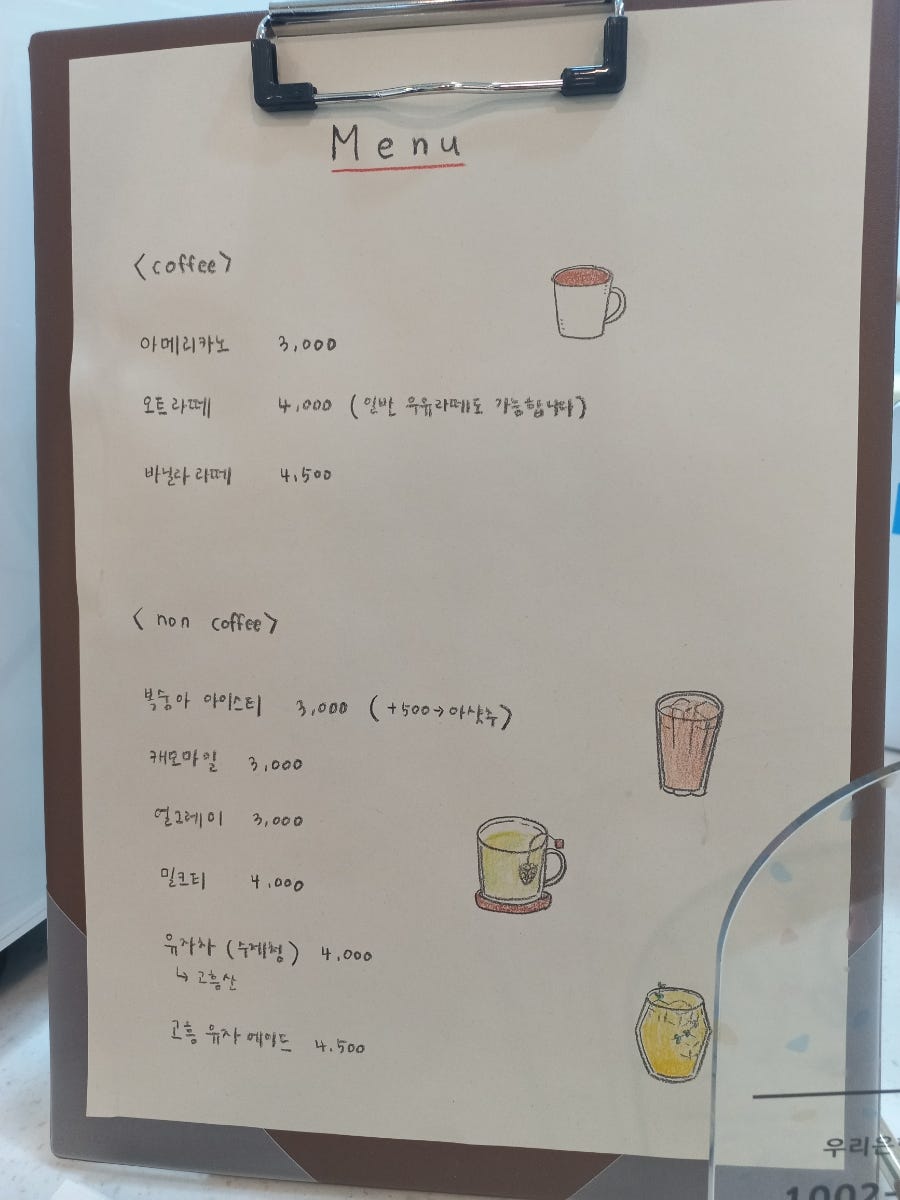 Menu
<coffee>
아메리카노 3,000
오트라떼 4,000 (일반 우유라떼도 가능합니다)
바닐라 라떼 4,500
<non coffee>
복숭아 아이스티 3,000 (+500→아샷추)
캐모마일 3,000
얼그레이 3,000
밀크티 4,000
유자차 (수제청) 4,000
↳ 고흥산
고흥 유자 에이드 4.500
우리은
1002-